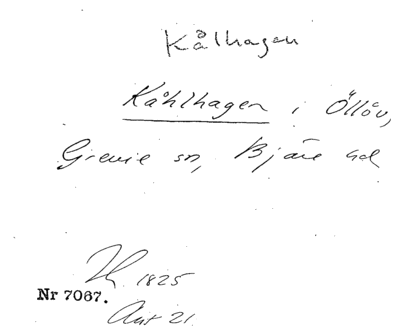 Kålhagen
Kåhlhagen i Öllöv,
Grevie sn, Bjäre hd
1825
Nr 7067.
21